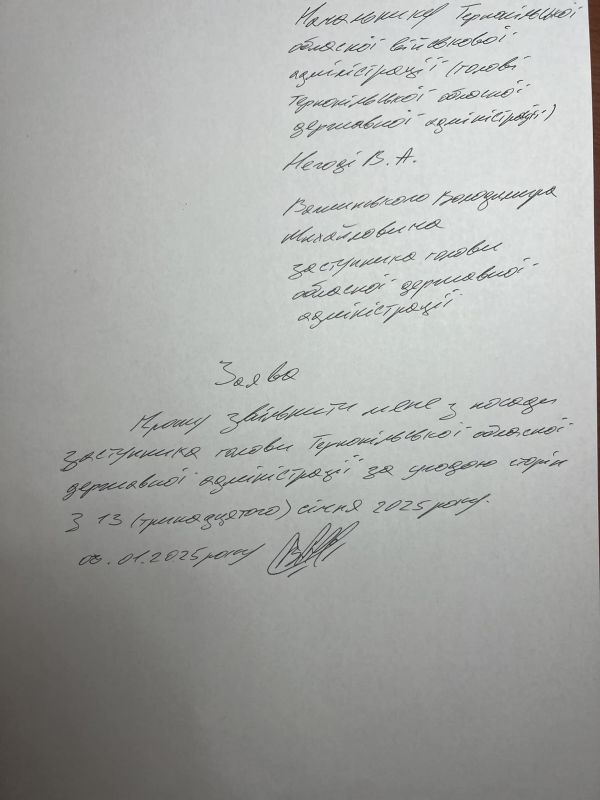 Начальнику Тернопільської
обласної військової
адміністрації (голові
Тернопільської обласної
державної адміністрації)
Негоді В. А.
Важинського Володимира
Михайловича
заступника голови
обласної державної
адміністрації
Заява
Прошу звільнити мене з посади
заступника голови Тернопільської обласної
державної адміністрації за угодою сторін
з 13 (тринадцятого) січня 2025 року.
06.01.2025 року